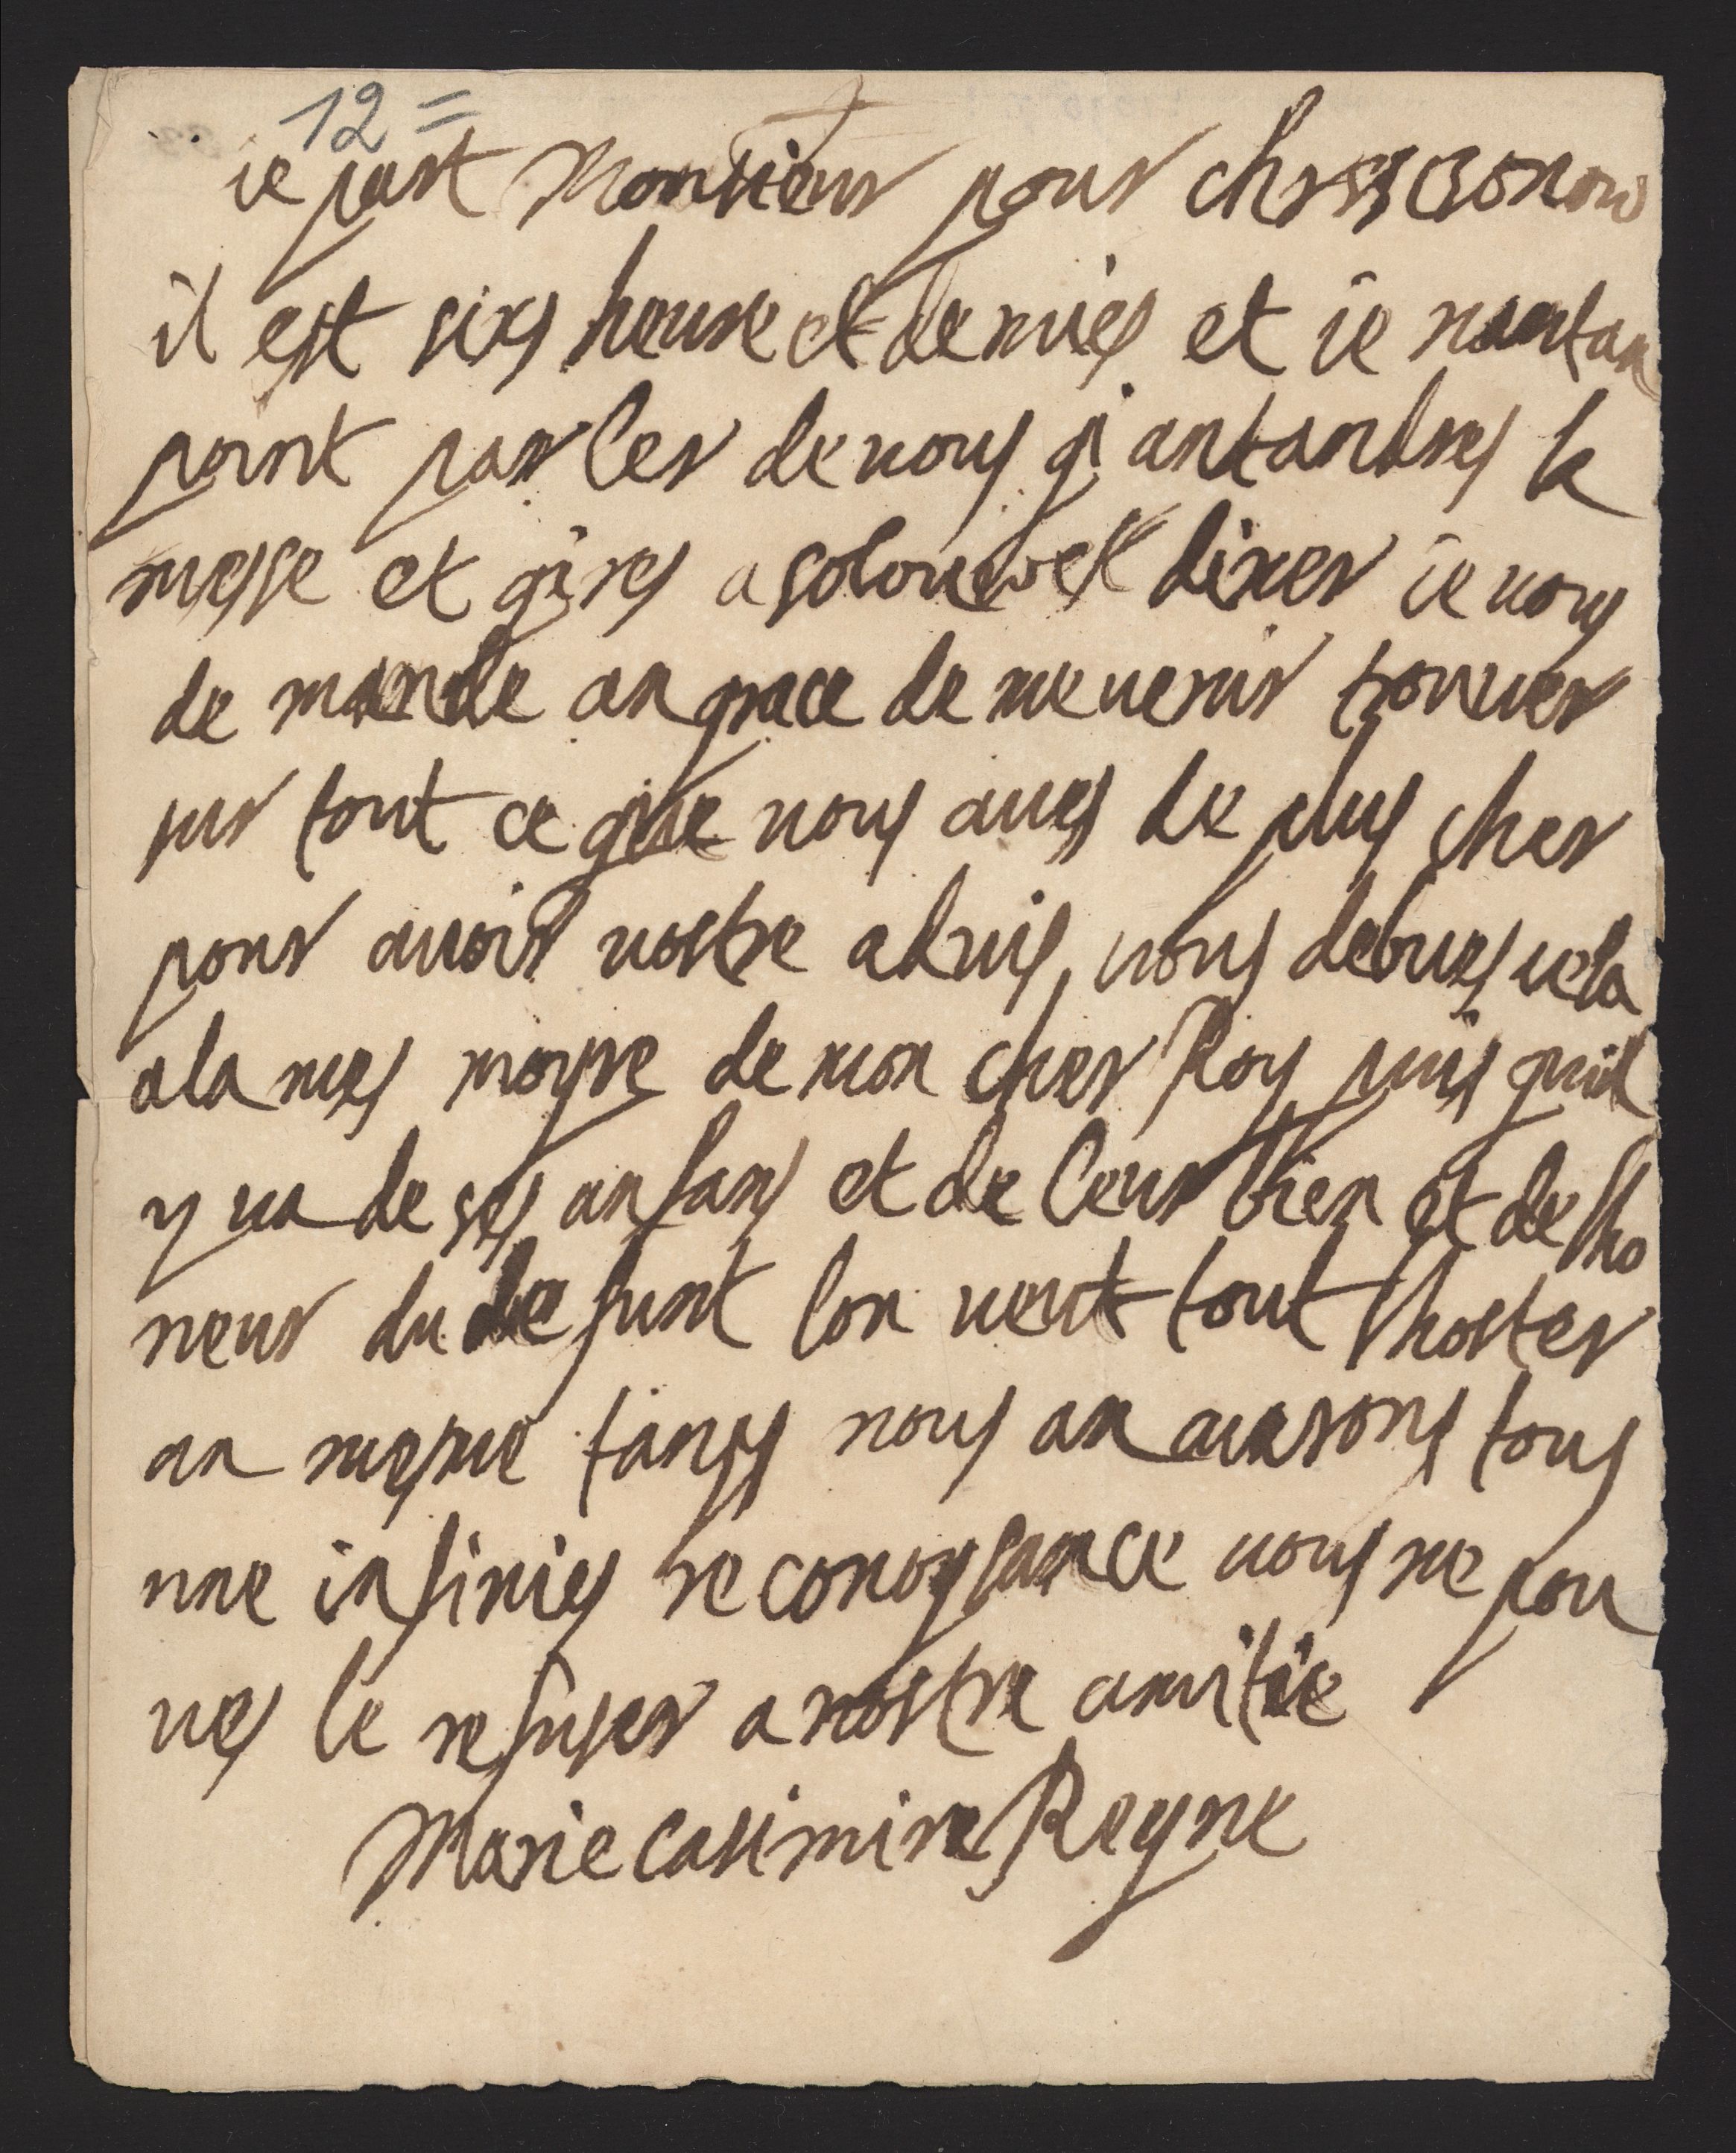 12=
ie part Monsieur pour
il est sixs heure et demies et ie nantan
point parler de vous gi antandres la
messe et gires a dixer ie vous
de mande an grace de me venir trouver
sur tout ce que vous aves de plus cher
pour avoir vostre aduis, vous debves cela
a la mes moyre de mon cher Roy puis quil
y va de ses anfans et de leur bien et de lho
neur du defunt lon veut tout lhoster
an mesme tangs nous an aurons tous
une infinies reconoysance vous ne pou
ves le refuser a nostre amitie
Marie Casimire Reyne